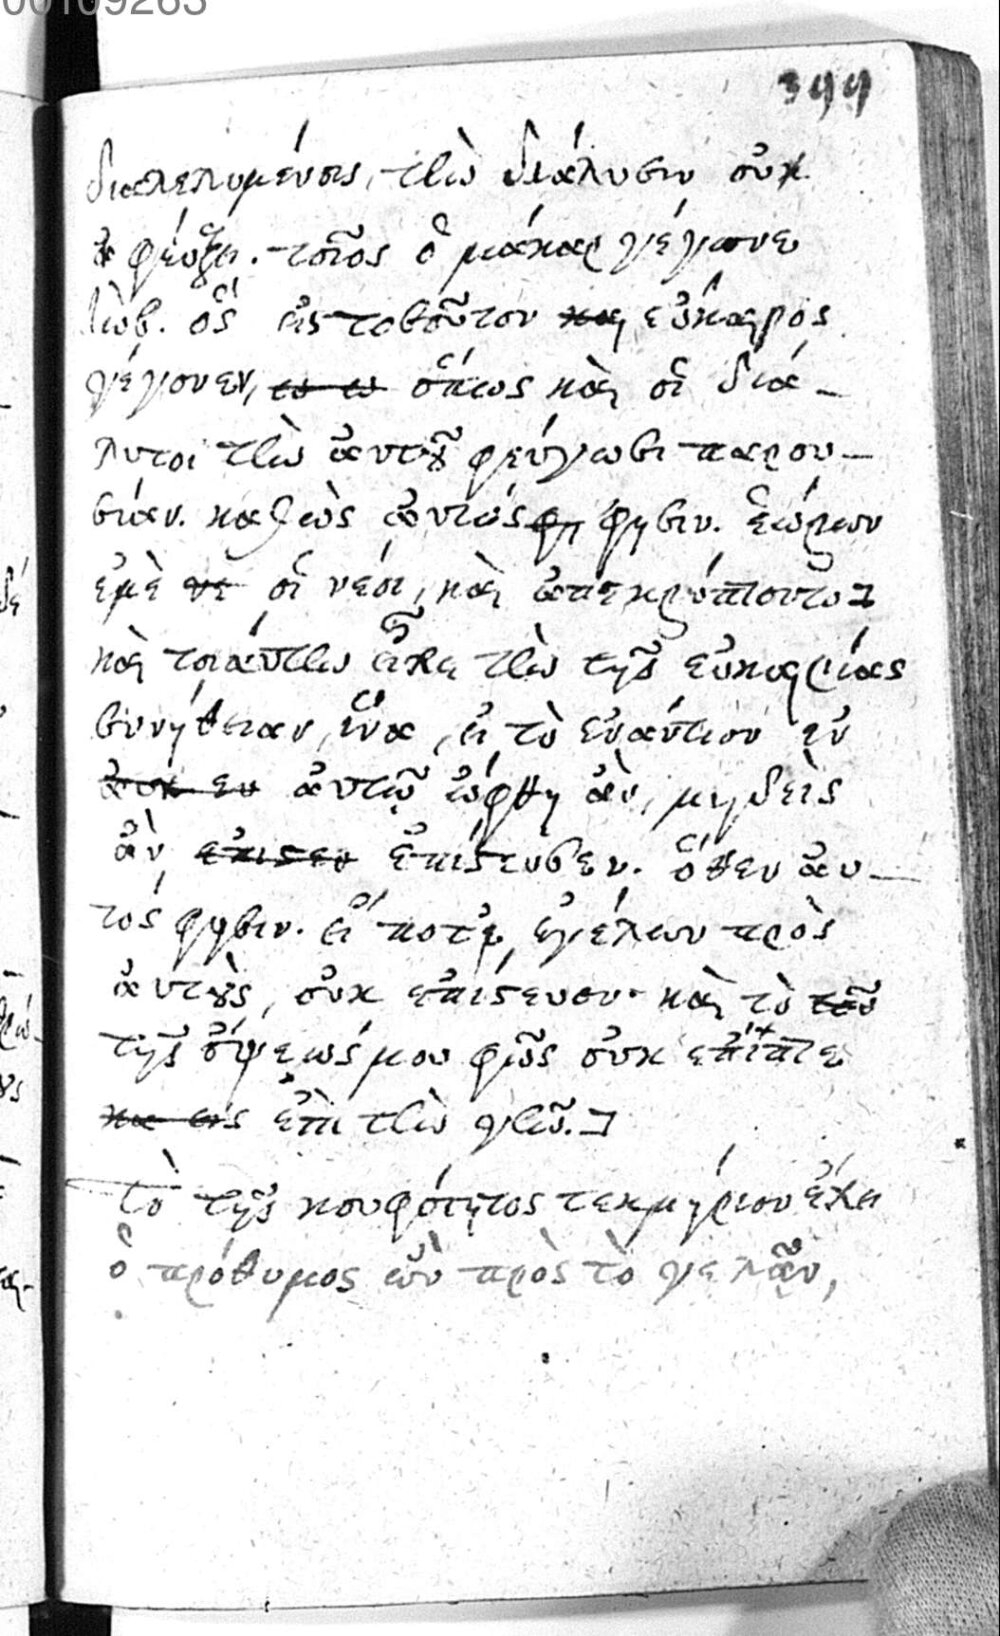 00109263
399
διαλελυμένοις, τὴν διάλυσιν οὐκ
φεύξη. τοῖος ὁ μάκαρ γέγονε
Ἰώβ. ὃς εἰς τοσοῦτον και εὔκαιρος
γέγονεν, οὕτως καὶ οἱ διά-
λυτοι τὴν αὐτοῦ φεύγωσι παρου-
σίαν. καθὼς αὐτός φη φησιν. ἑώρων
ἐμὲ νε οἱ νέοι, καὶ ἀπεκρύπτοντο
καὶ τοιαύτην εἶχε τὴν τῆς εὐκαιρίας
συνήθειαν, ἵνα, εἰ τὸ ἐναντίον ἐν
αὐτῷ ὤφθη ἂν, μηδεὶς
ἂν, επισευ ἐπίστευσεν. ὅθεν αὐ-
τός φησιν. εἴ ποτε ἐγέλων πρὸς
αὐτοὺς, οὐκ ἐπίστευον. καὶ τὸ του
τῆς ὄψεώς μου φῶς οὐκ ἔπιπτε
ἐπὶ τὴν γῆν.
Τὸ τῆς κουφότητος τεκμήριον ἔχει
ὁ πρόθυμος ὢν πρὸς τὸ γελᾶν,